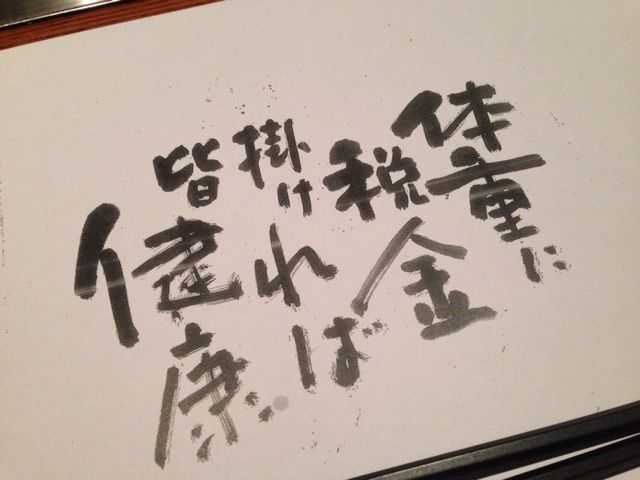 体重に
税金
掛ければ
皆健康